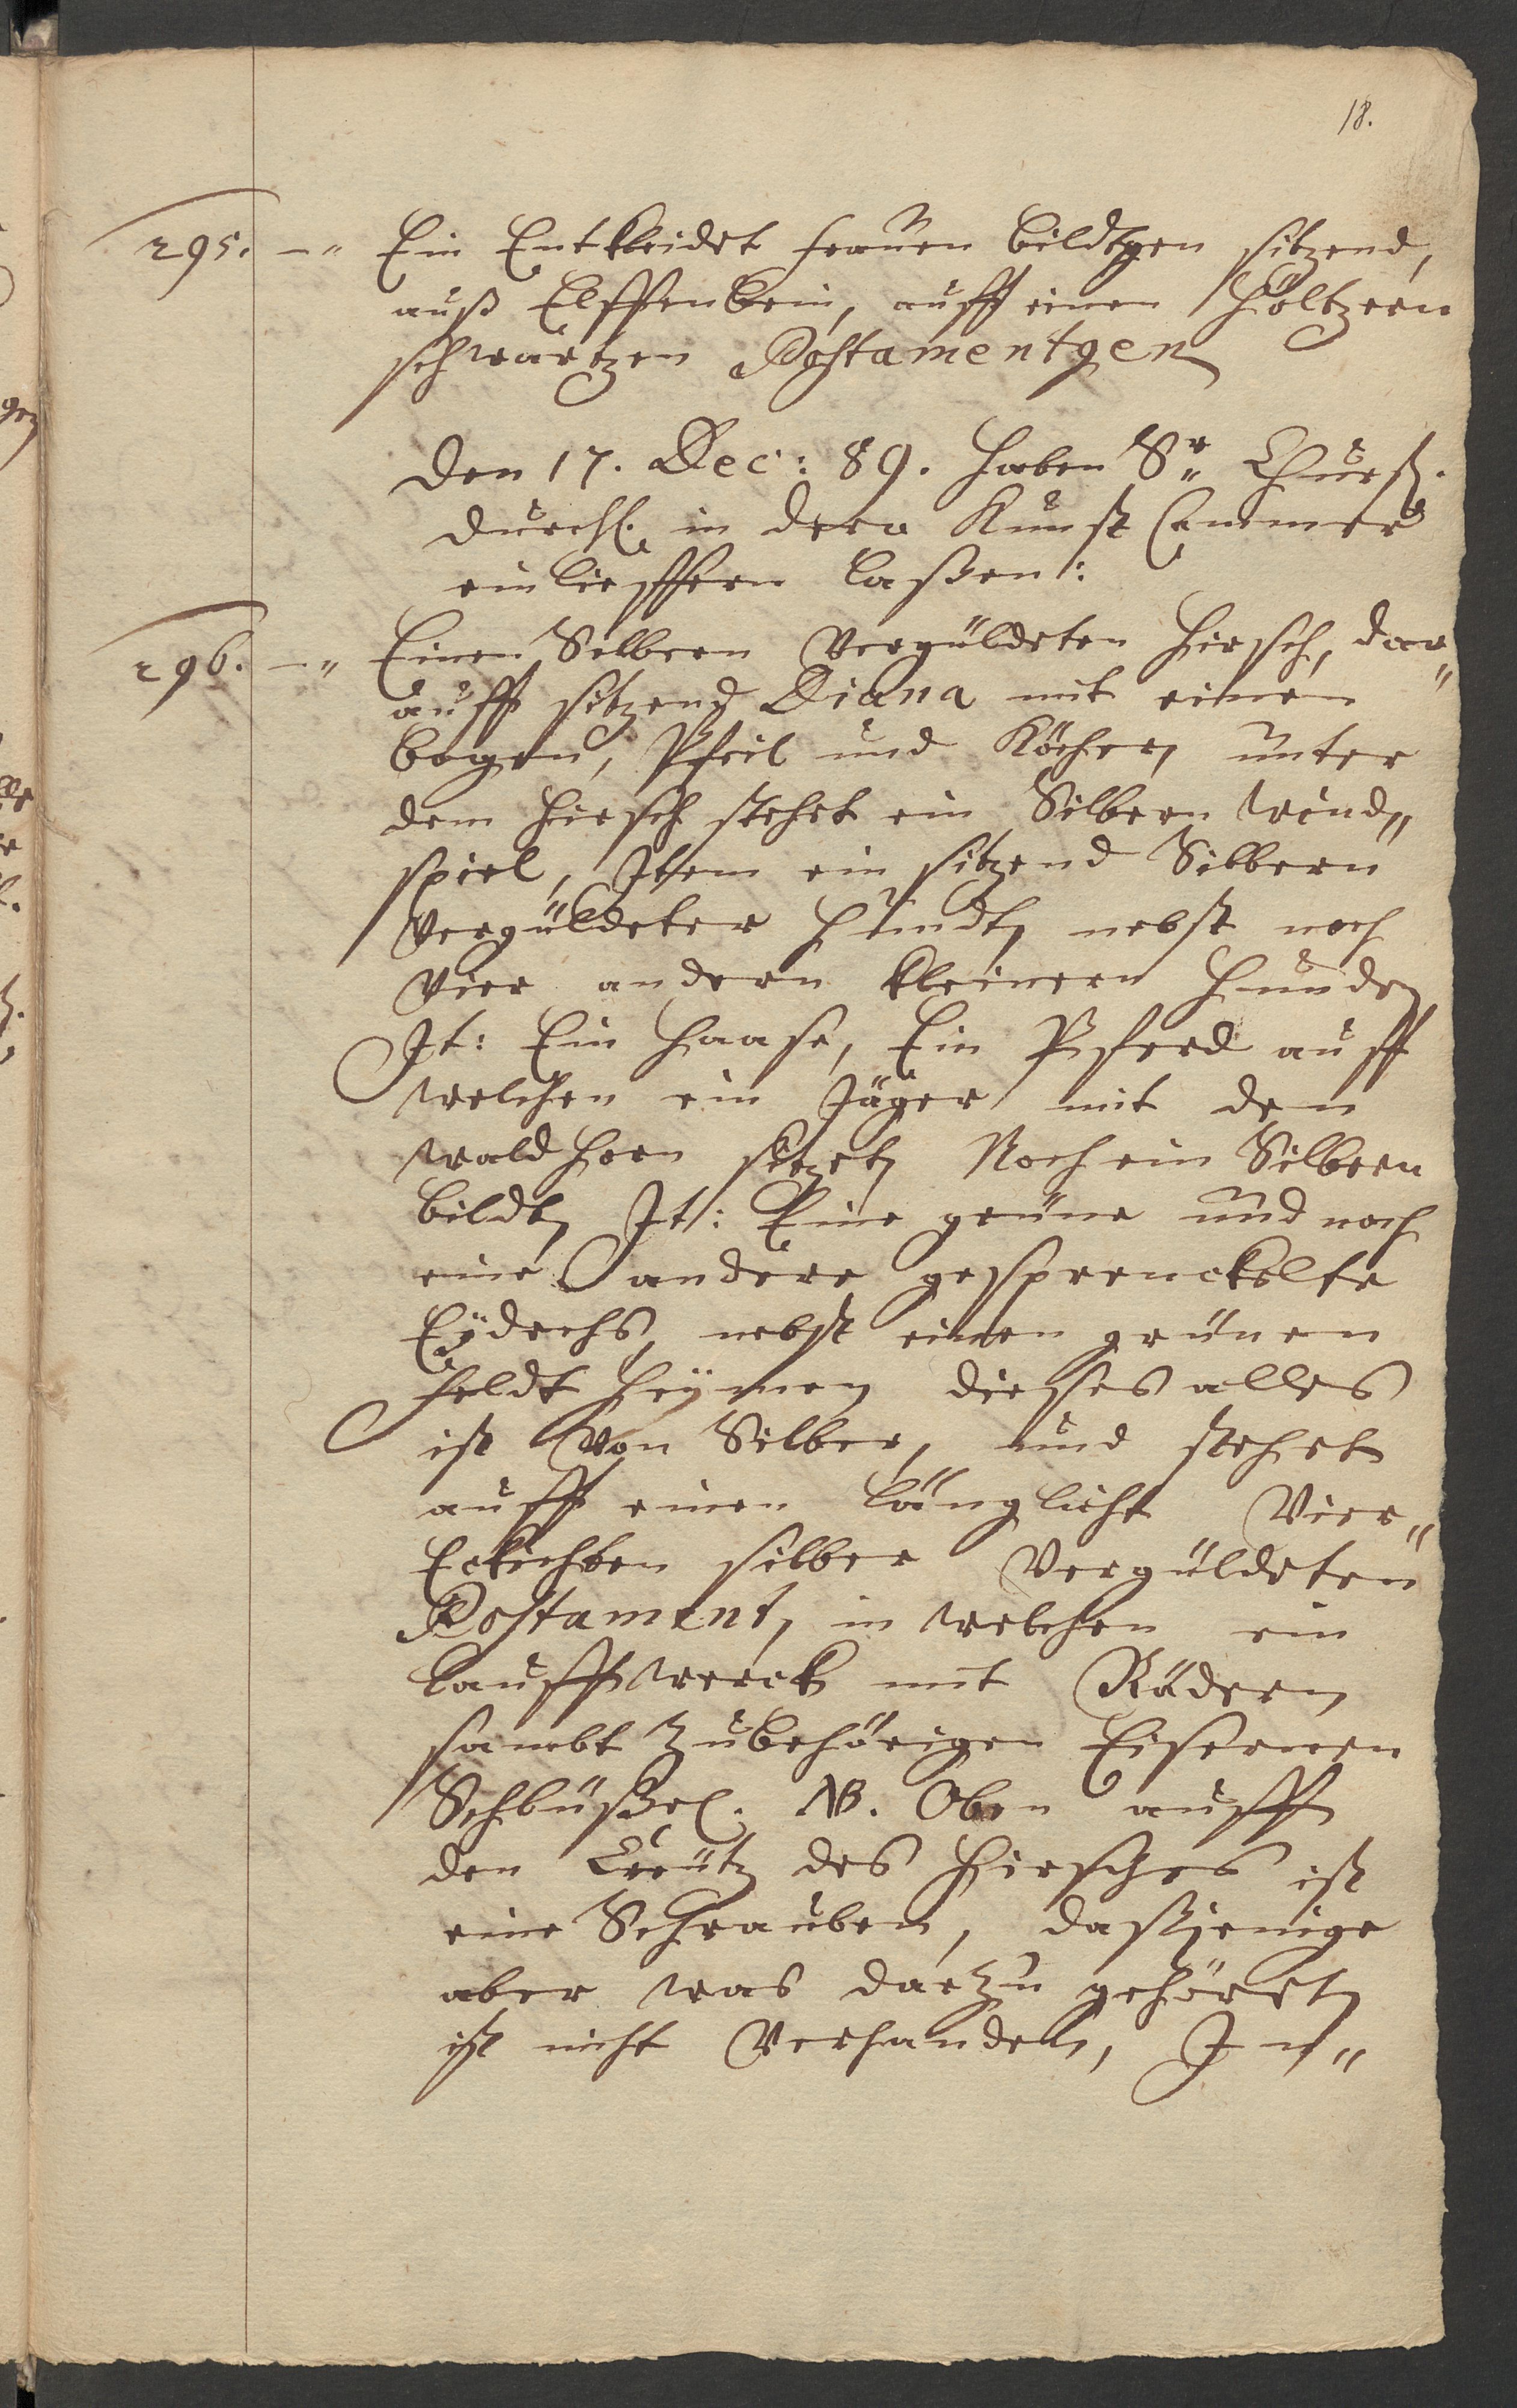 18.
295. -„ Ein Entkleidet frauen bildtgen sitzend,
auß Elffenbein, auff einen Höltzern
schwartzen Postamentgen
Den 17. Dec: 89. haben Sr. Churfl.
Durchl. in dero Kunst Cammer
einlieffern laßen:
296. -„ Einen Silbern Vergüldeten Hirsch, dar„
auff sitzend Diana mit einen
bogen, Pfeil und Köcher, unter
dem Hirsch stehet ein Silbern Wind„
spiel, Item ein sitzend Silbern
Vergüldeter Hundt, nebst noch
Vier andern kleinern Hunden,
It: Ein Haase, Ein Pferd auff
welchen ein Jäger mit den
Waldhorn sitzet, Noch ein Silbern
bildt, It: Eine grüne und noch
eine andere gesprenckelte
Eÿdechs, nebst einen grünen
feldt heÿmen, dieses alles
ist Von Silber, und stehet
auff einen länglicht Vier„
Eckichten silber Vergüldeten
Postament, in welchen ein
Lauffwerck mit Rädern,
sambt Zubehörigen Eisernen
Schlüßel. NB. Oben auff
den Creütz des Hirsches ist
eine Schrauben, dasjenige
aber was dartzu gehöret,
ist nicht Verhanden, In„